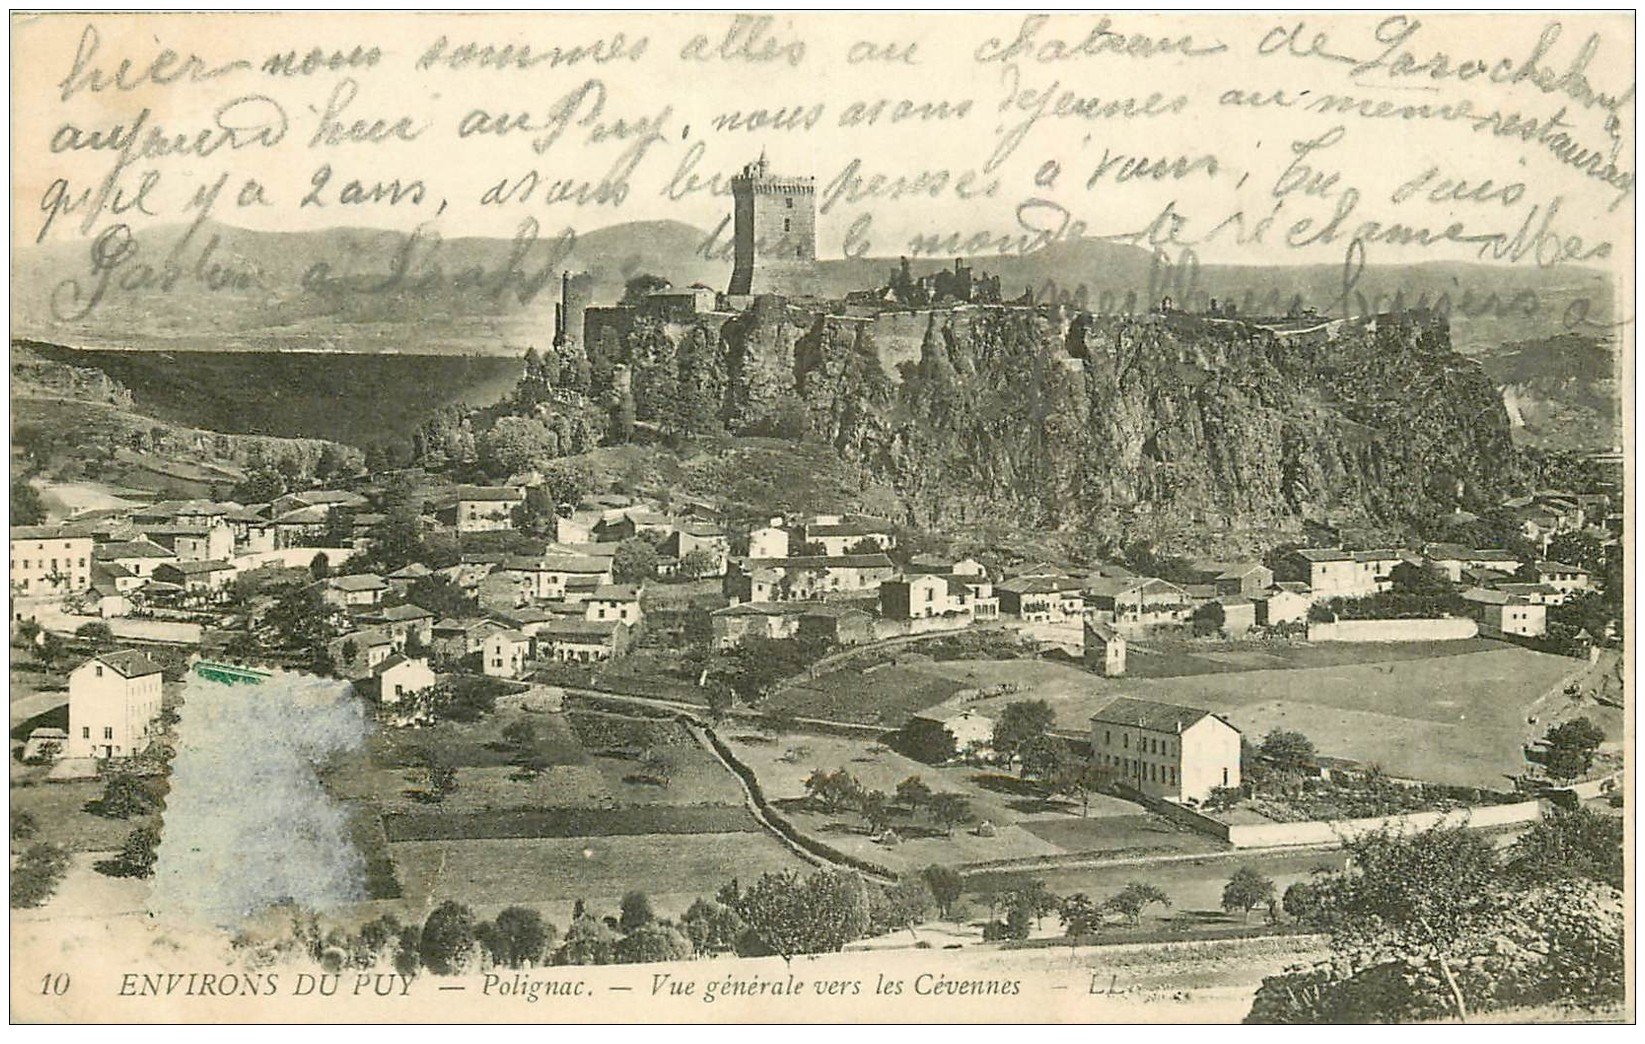 hier nous sommes allés au chateau de Larochelambert
aujourd'hui au Puy, nous avons dejeunes au même restaurant
qu'il y a 2 ans, avons bien penses à vous, tu sais
tout le monde te réclame Mes
Gaston a meilleurs baisers a
10 ENVIRONS DU PUY — Polignac. — Vue générale vers les Cévennes — LL.